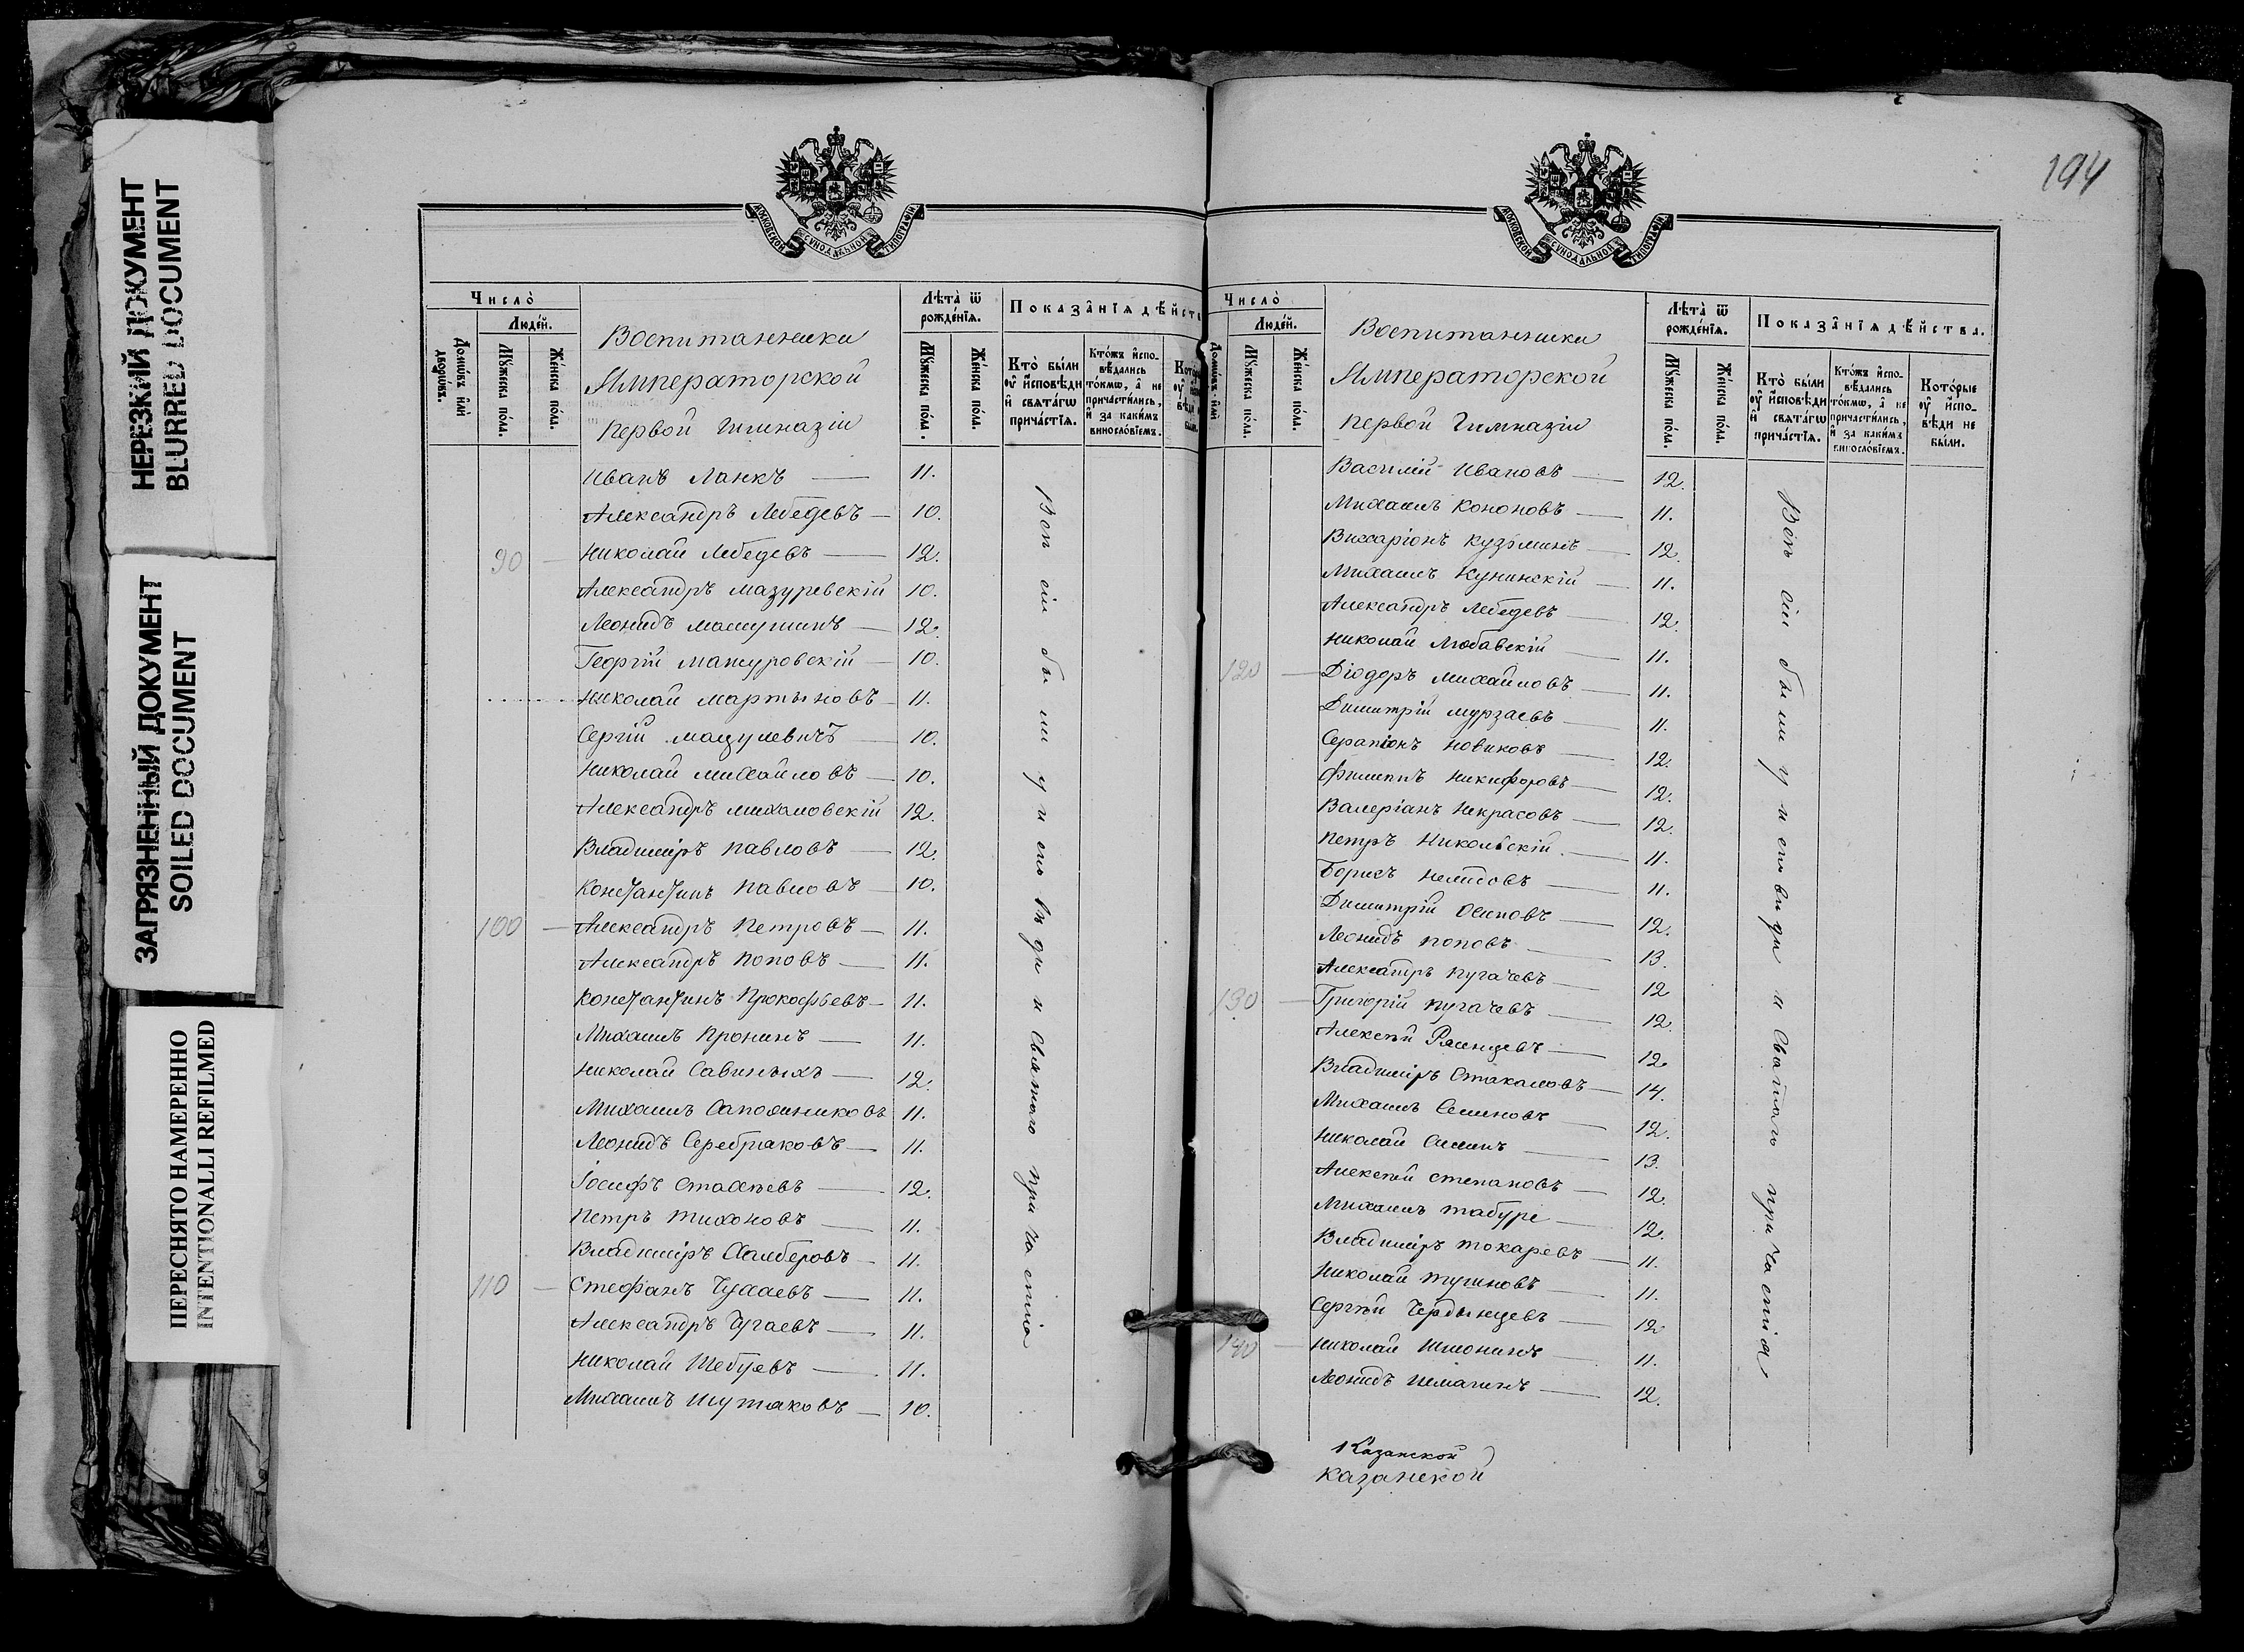 НЕРЕЗКИЙ ДОКУМЕНТ
BLURRED DOCUMENT
ЗАГРЯЗНЕННЫЙ ДОКУМЕНТ
SOILED DOCUMENT
ПЕРЕСНЯТО НАМЕРЕННО
INTENTIONALLI REFILMED
МОСКОВСКОЙ СѴНОДАЛЬНОЙ ТИПОГРАФІИ
Число̀
Люде́й.
Домѡ́въ и҆лѝ дворѡ́въ.
Мꙋ́жеска по́ла.
Же́нска по́ла.
Воспитанники
Императорской
первой Гимназіи
Лѣта̀ ѿ рожде́нїѧ.
Мꙋ́жеска по́ла.
Же́нска по́ла.
Показа̑нїѧ дѣ́йств
Кто̀ бы́ли
оу҆ и҆спо́вѣди
и҆ свѧта́гѡ
прича́стїѧ.
Кто́жъ и҆спо-
вѣ́дались
то́кмѡ, а҆ не
причасти́лись,
и҆ за каки́мъ
винослові́емъ.
Иванъ Ланкъ — 11.
Александръ Лебедевъ — 10.
90 — Николай Лебедевъ — 12.
Александръ Мазуревскій 10.
Леонидъ — 12.
Георгій — 10.
Николай Мартыновъ — 11.
Сергій Мацулевичъ 10.
Николай Михайловъ — 10.
Александръ 12.
Владиміръ Павловъ — 12.
Константинъ Павловъ — 10.
100 — Александръ Петровъ — 11.
Александръ Поповъ — 11.
Константинъ Прокофьевъ — 11.
Михаилъ Пронинъ — 11.
Николай Савиныхъ — 12.
Михаилъ Сапожниковъ 11.
Леонидъ Серебряковъ — 11.
Іосифъ Стахѣевъ — 12.
Петръ Тихоновъ — 11.
Владиміръ — 11.
110 — Стефанъ — 11.
Александръ Чугаевъ — 11.
Николай Шебуевъ — 11.
Михаилъ Шутяковъ — 10.
Всѣ сіи были у исповѣди и Святаго причастія
194
МОСКОВСКОЙ СѴНОДАЛЬНОЙ ТИПОГРАФІИ
Число̀
Люде́й.
Домѡ́въ и҆лѝ
Мꙋ́жеска по́ла.
Же́нска по́ла.
Воспитанники
Императорской
первой Гимназіи
Лѣта̀ ѿ рожде́нїѧ.
Мꙋ́жеска по́ла.
Же́нска по́ла.
Показа̑нїѧ дѣ́йства.
Кто̀ бы́ли
оу҆ и҆спо́вѣди
и҆ свѧта́гѡ
прича́стїѧ.
Кто́жъ и҆спо-
вѣ́дались
то́кмѡ, а҆ не
причасти́лись,
и҆ за каки́мъ
винослові́емъ.
Кото́рые
оу҆ и҆спо-
вѣди не
бы́ли.
Василій Ивановъ — 12.
Михаилъ Кононовъ — 11.
Виссаріонъ Кузьминъ — 12.
Михаилъ Кунинскій — 11.
Александръ Лебедевъ — 12.
Николай Любавскій — 11.
120 — Діодоръ Михайловъ — 11.
Димитрій Мурзаевъ — 11.
Серапіонъ Новиковъ — 12.
Филиппъ Никифоровъ — 12.
Валеріанъ Некрасовъ — 12.
Петръ Никольскій. — 11.
Борисъ Нелидовъ — 11.
Димитрій Осиповъ — 12.
Леонидъ Поповъ — 13.
Александръ Пугачевъ — 12
130 — Григорій Пугачевъ — 12.
Алексѣй — 12.
Владиміръ Стакаловъ — 14.
Михаилъ — 12.
Николай — 13.
Алексѣй Степановъ — 12.
Михаилъ Табуре — 12.
Владиміръ Токаревъ — 11.
Николай — 11.
Сергѣй Чердынцевъ — 12
140 — Николай — 11.
Леонидъ — 12.
Всѣ сіи были у исповѣди и Святаго причастія
1 Казанской
Казанской